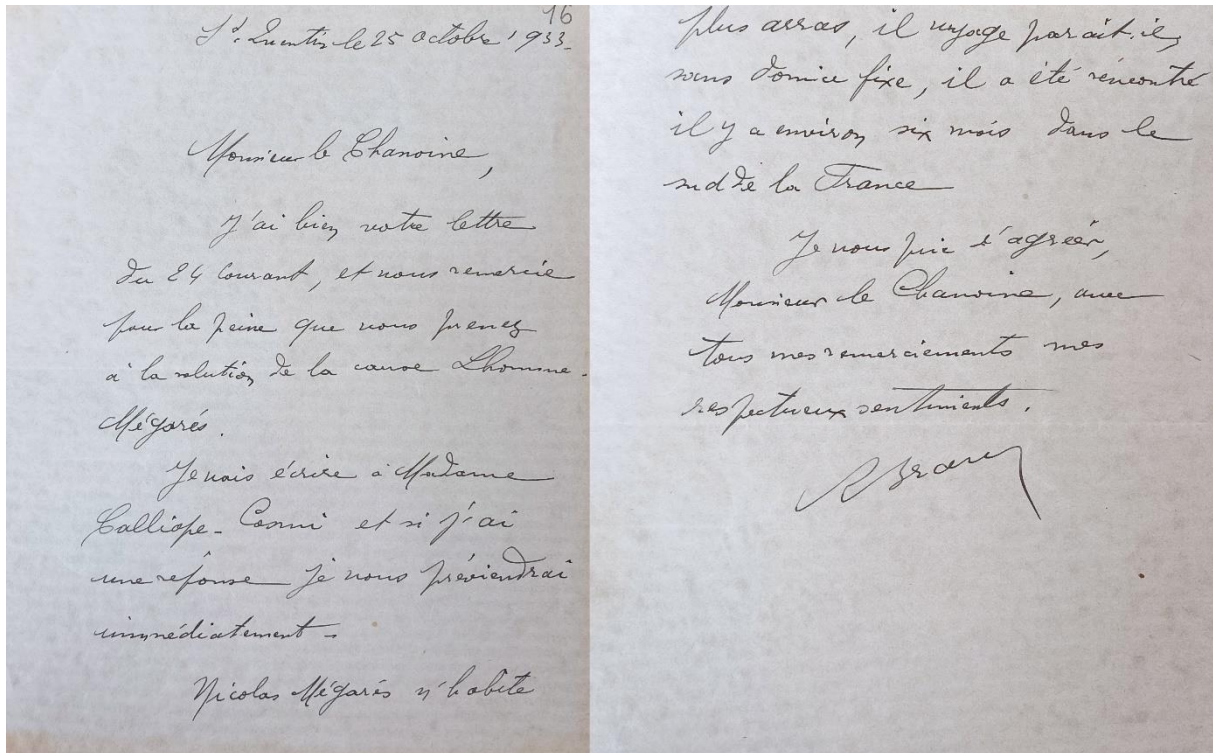 16
St. Quentin le 25 octobre 1933.
Monsieur le Chanoine,
J'ai bien votre lettre
du 24 courant, et vous remercie
pour la peine que vous prenez
à la solution de la cause Lhomme-
Mégarés.
Je vais écrire à Madame
Calliope-Cosmi et si j'ai
une réponse je vous préviendrai
immédiatement -
Nicolas Mégarés n'habite
plus arras, il voyage parait-il,
sans domice fixe, il a été rencontré
il y a environ six mois dans le
sud de la France
Je vous prie d'agréer,
Monsieur le Chanoine, avec
tous mes remerciements mes
respectueux sentiments.